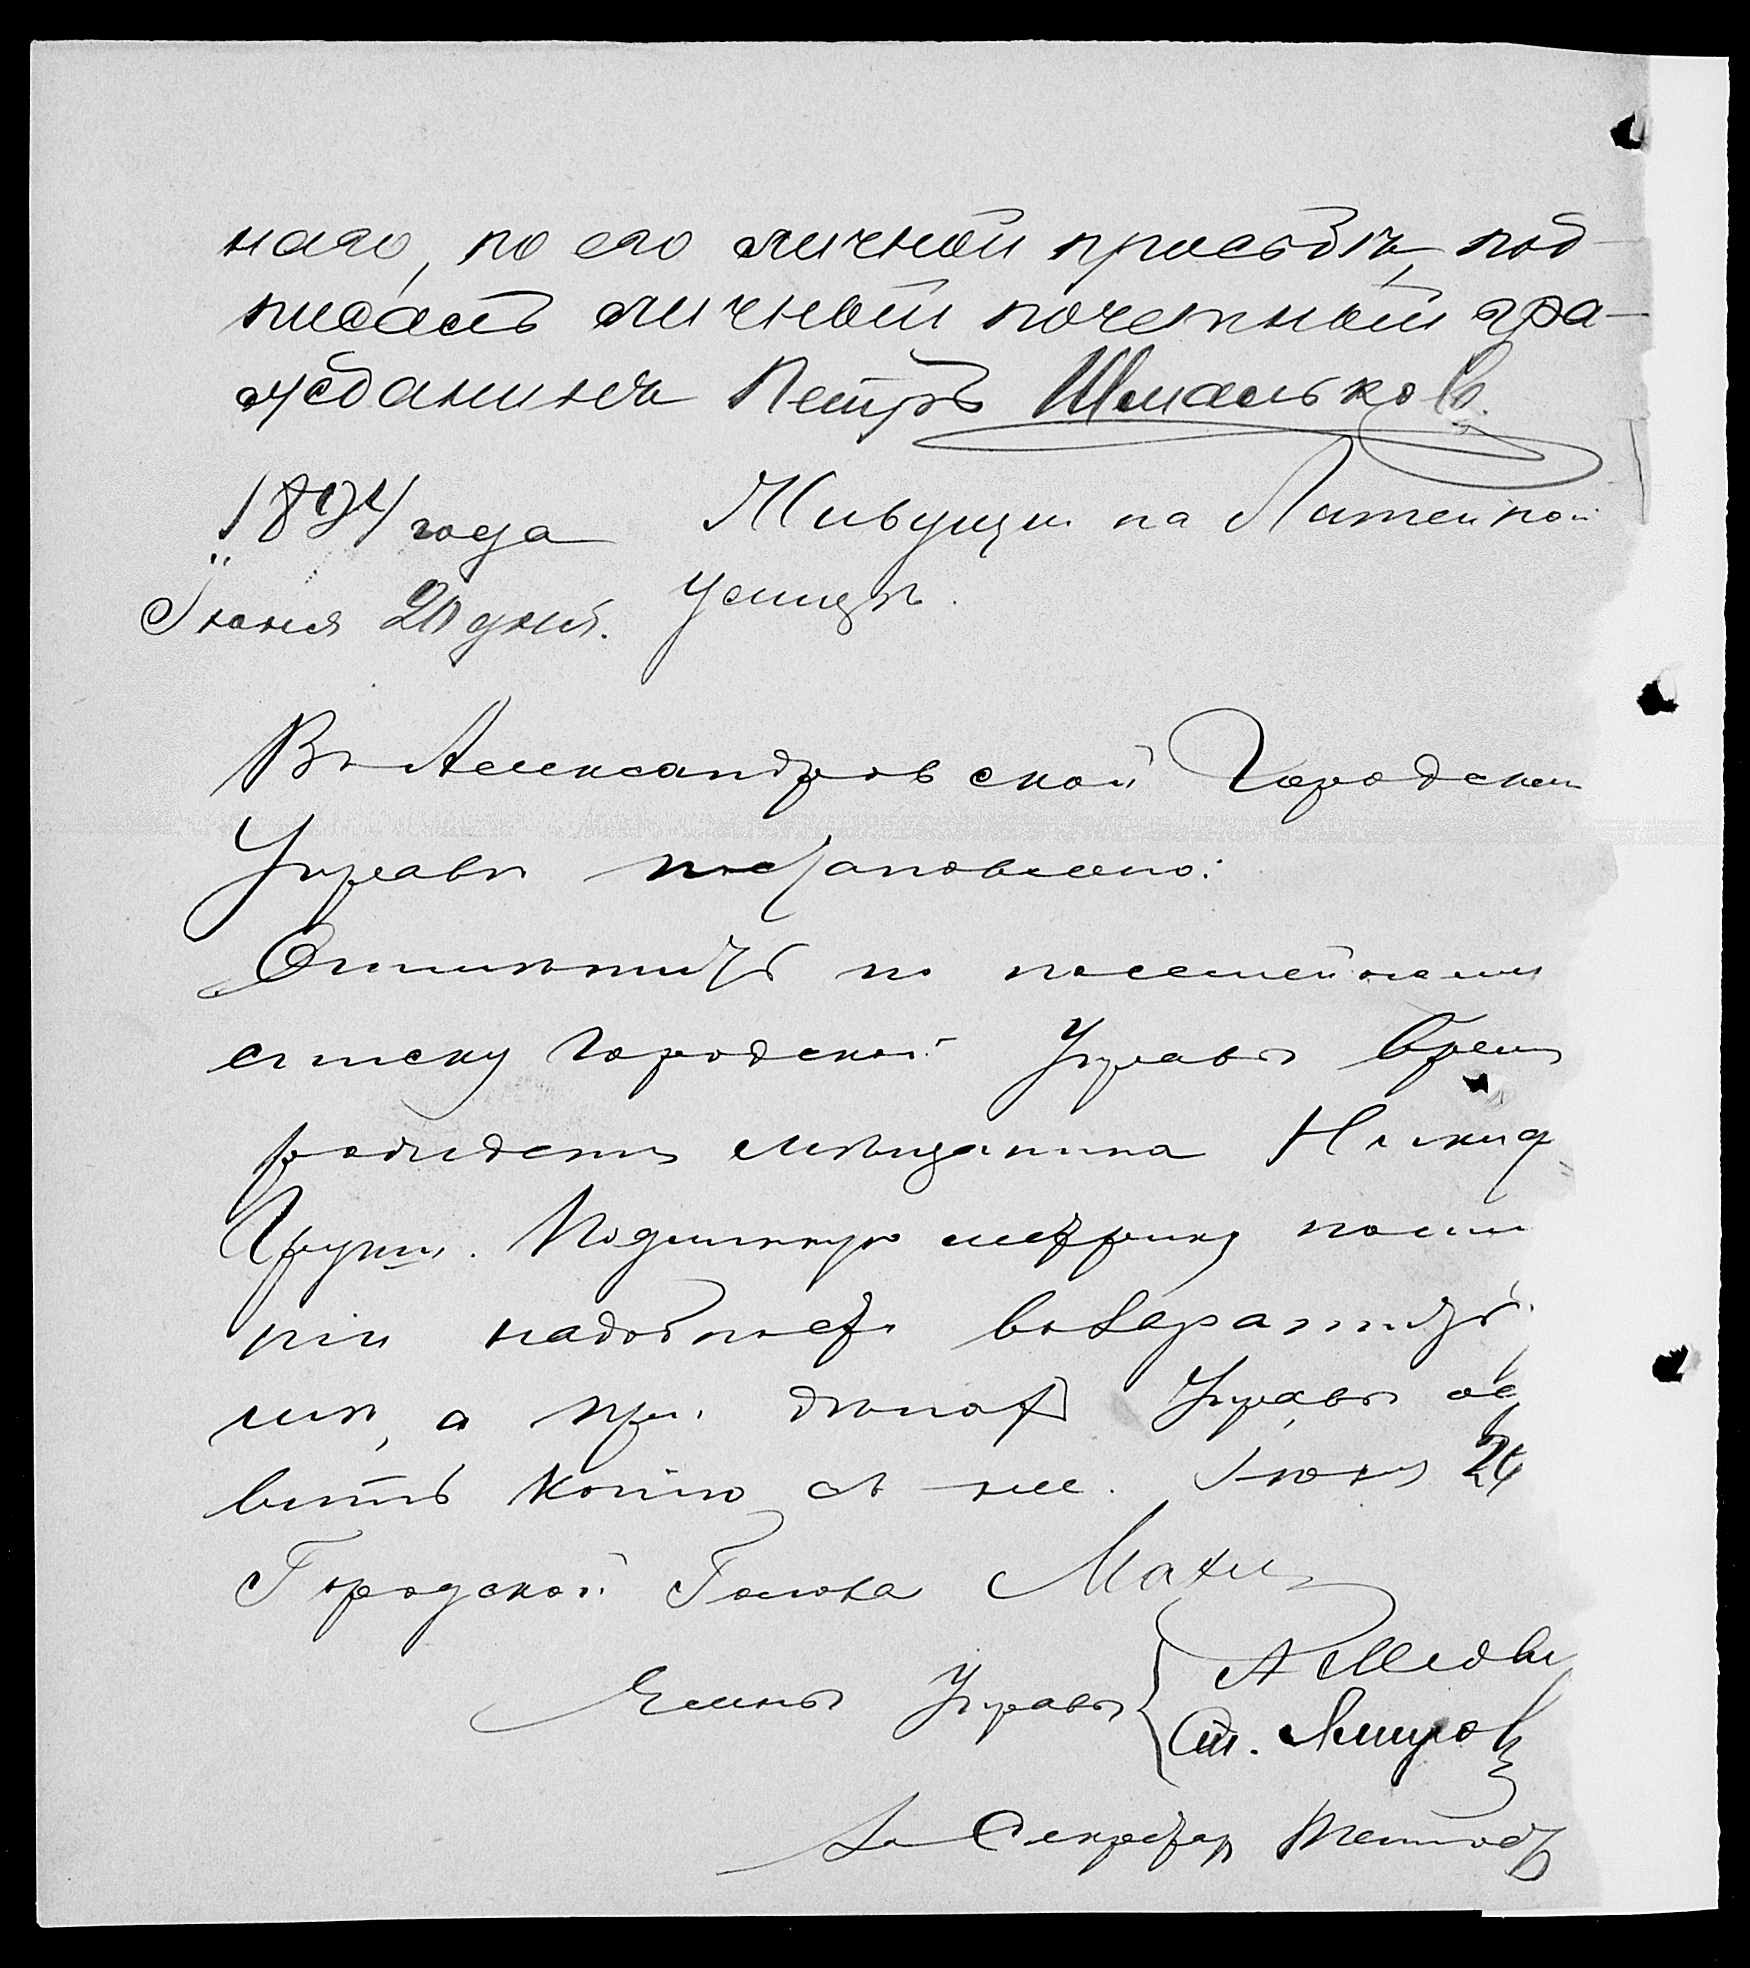 наго, по его личной просьбѣ, под-
писалъ личной почетный гра-
жданинъ Петръ Шмальковъ.
1894 года Живущ. на Литейной
Іюня 20 дня. улицѣ.
Въ Александровской Городской
Управѣ постановлено:
Отмѣтить по посемейному
списку Городской Управы время
рожденія мѣщанина
Подлинную метрику по ми
ніи надобности возвратить
а при дѣлахъ Управы ос
вить копію съ нее. Іюня 24
Городской Голова
Члены Управы { А
Ст.
За Секретаря